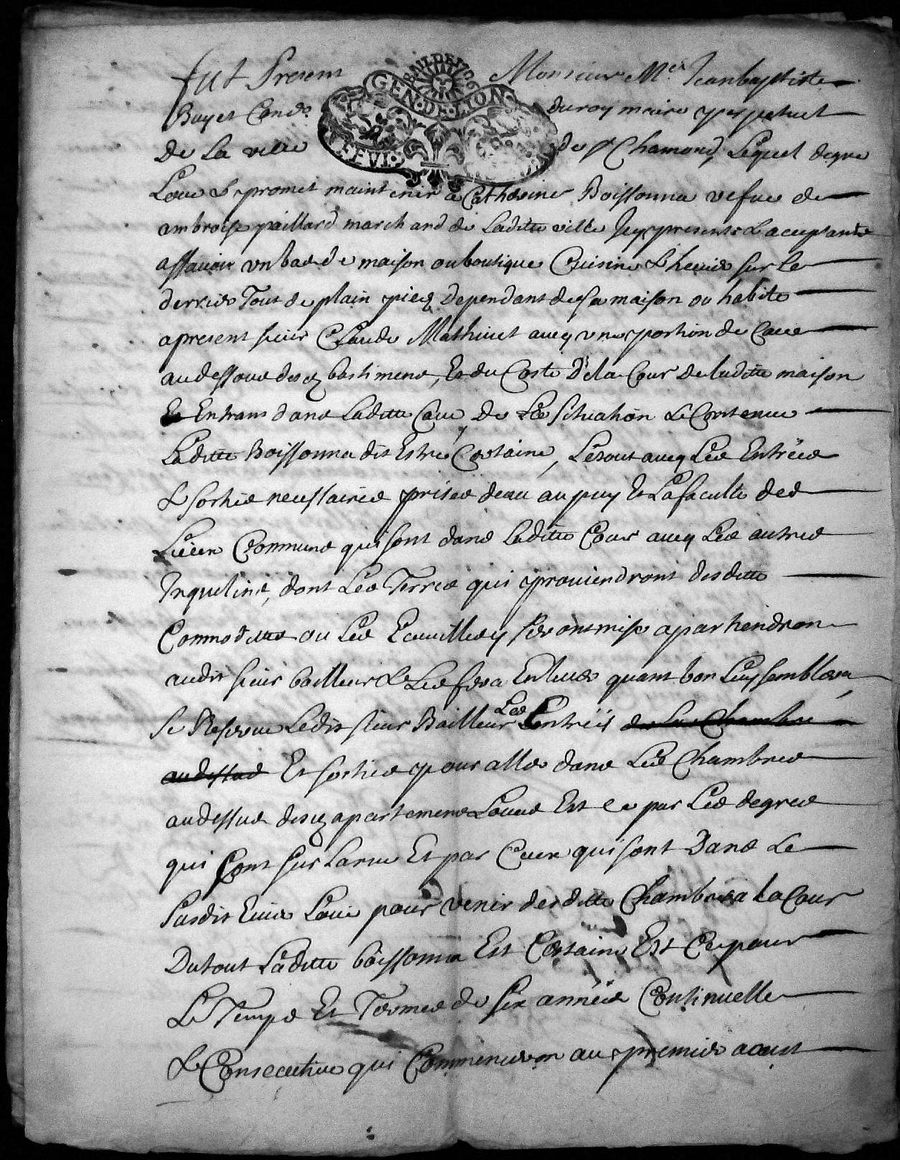 fut Present Monsieur Me Jean baptiste
Boyer Conser du roy maire perpetuel
GEN·DE·LION
De La ville de St Chamond Lequel degre
Loue & promet maintenir a Catherine Boissonna vefue de
ambroise paillard marchand de Laditte ville Icy presente & aceptante
assauoir vn bas de maison ou boutique Cuisine & sur le
derrier Tout de plain pied Dependant de sa maison ou habite
apresent sieur Claude Mathiuet aueq vne portion de Caue
au dessoue desd bastimens, Et du Costé De la Cour de laditte maison
Entrant dans Laditte Caue De Lés Situation & Contenue
Laditte Boissonna dit Estre Certaine, Le tout aueq Lés Entrées
& sorties neussaires prises deau au puy Et La faculté des
Lieux Communs qui sont dans Laditte Cour aueq Lés autres
Inquelins, dont Lés Terres qui prouiendront desditte
Commodittes ou Lés Ecuillieres seront mise apartiendron
audit sieur bailleur & Lés fera Enleuer quant bon Luy semblera
Se Reserue Ledit sieur Bailleur Lés Entréés de La Chambre
au dessus Et sorties pour aller dans Lés Chambres
au dessus desd apartemens Loués Est Ce par Lés degrés
qui sont sur La rue Et par Ceux qui sont Dans Le
Susdit Loué pour venir desditte Chambres a La Cour
Dutout Laditte boissonna Est Certaine Est Ce pour
Le Temps Et Termes de six années Continuelle
& Consecutiue qui Commenceron au premier aoust